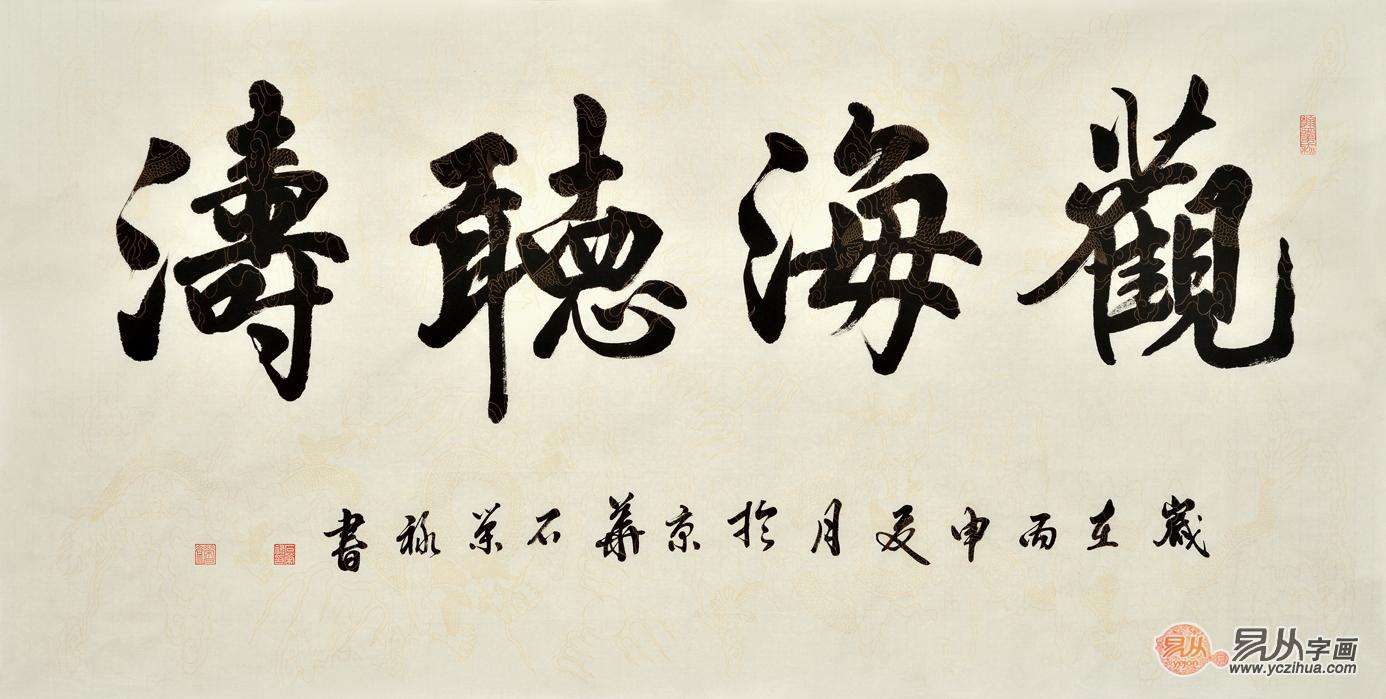 觀海聽濤
歲在丙申夏月於京華石榮祿書
易从字画
www.yczihua.com